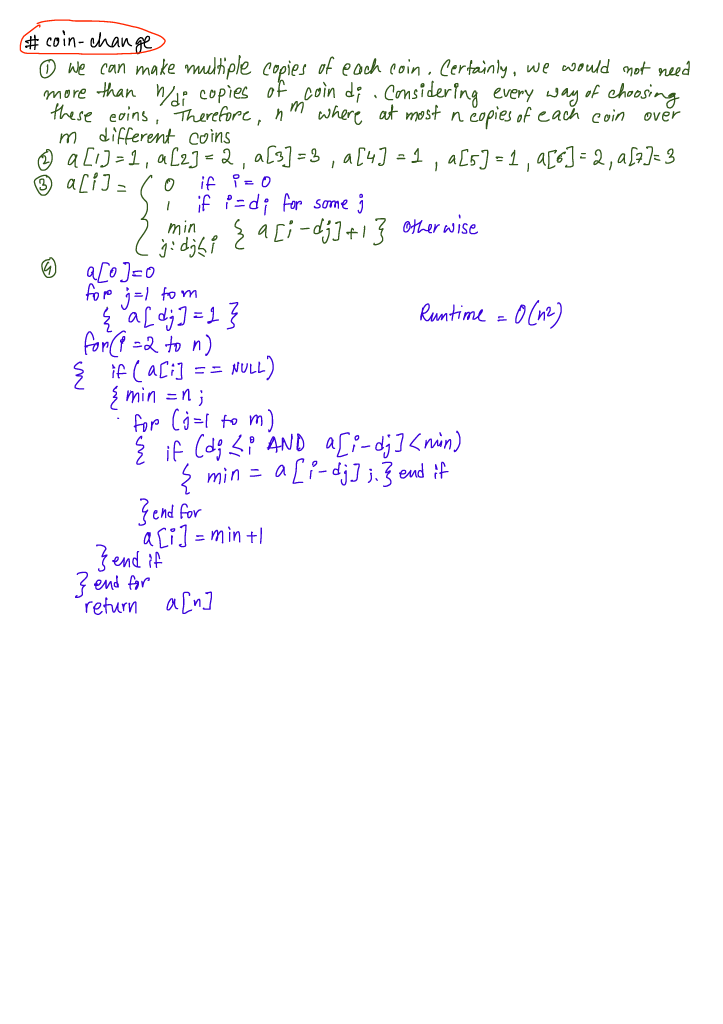 # coin-change
① we can make multiple copies of each coin. Certainly, we would not need
more than n/di copies of coin di. Considering every way of choosing
these coins, Therefore, n^m where at most n copies of each coin over
m different coins
② a[1]=1, a[2]=2, a[3]=3, a[4]=1, a[5]=1, a[6]=2, a[7]=3
③ a[i] = { 0 if i=0
1 if i=dj for some j
min j:dj≤i { a[i-dj]+1 } otherwise
④ a[0]=0
for j=1 to m
{ a[dj]=1 }
Runtime = O(n²)
for(i=2 to n)
{ if (a[i] == NULL)
{ min = n;
for (j=1 to m)
{ if (dj ≤ i AND a[i-dj]<min)
{ min = a[i-dj];} end if
} end for
a[i] = min+1
} end if
} end for
return a[n]